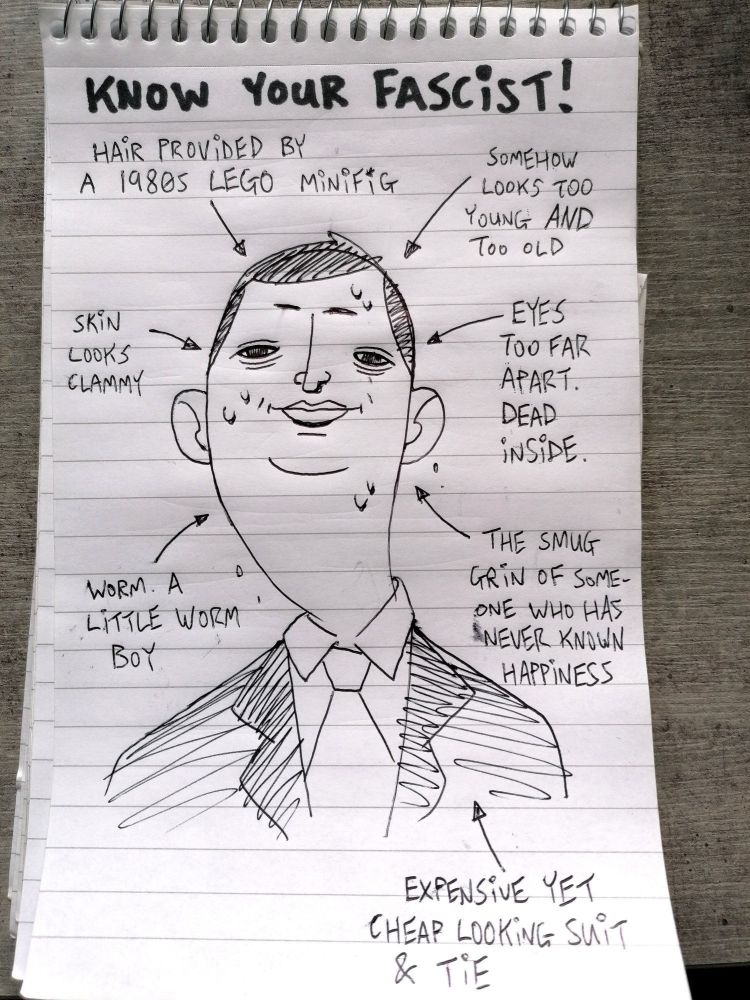 KNOW YOUR FASCIST!
HAIR PROVIDED BY
A 1980S LEGO MINIFIG
SOMEHOW
LOOKS TOO
YOUNG AND
TOO OLD
SKIN
LOOKS
CLAMMY
EYES
TOO FAR
APART.
DEAD
INSIDE.
WORM. A
LITTLE WORM
BOY
THE SMUG
GRIN OF SOME-
ONE WHO HAS
NEVER KNOWN
HAPPINESS
EXPENSIVE YET
CHEAP LOOKING SUIT
& TIE